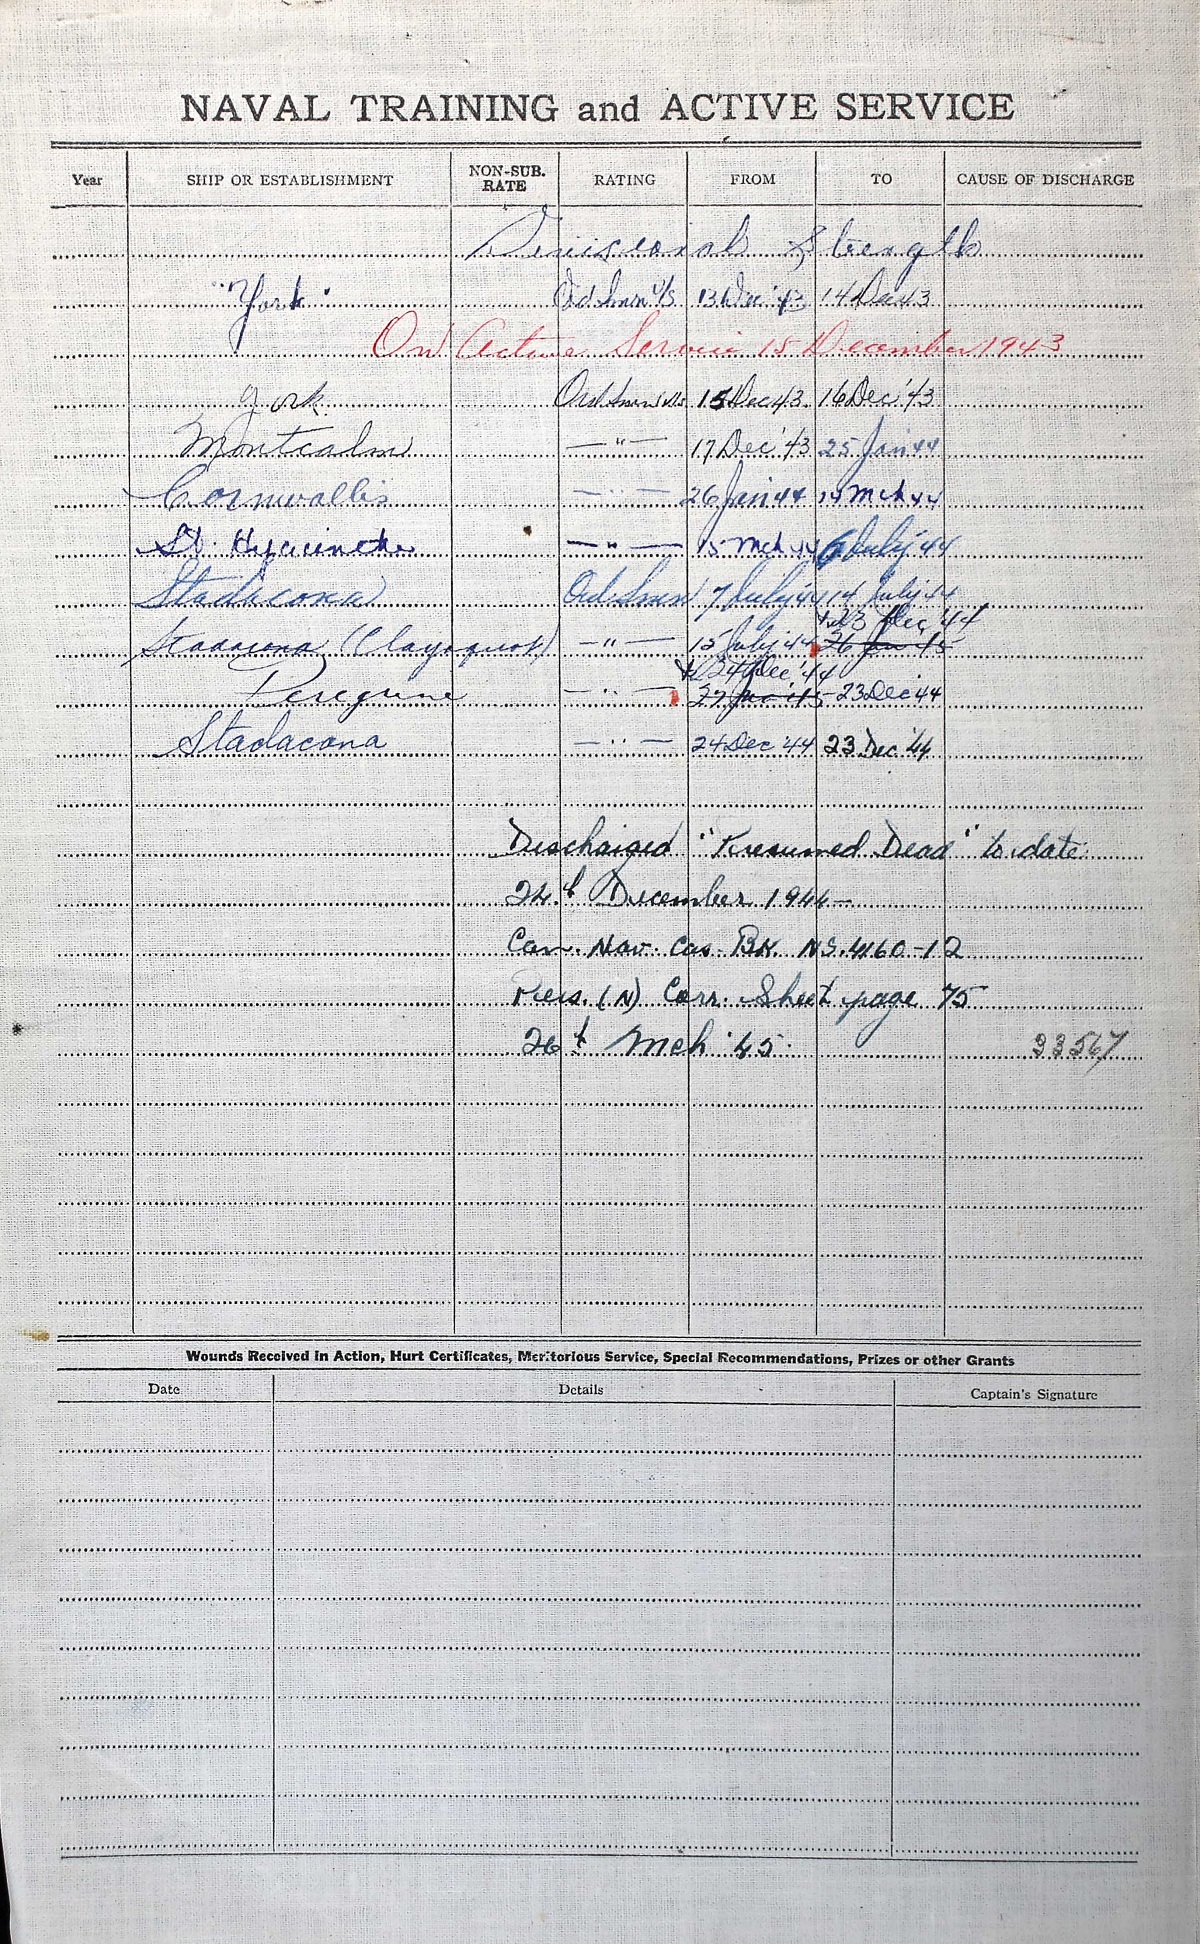 NAVAL TRAINING and ACTIVE SERVICE
Year SHIP OR ESTABLISHMENT NON-SUB. RATE RATING FROM TO CAUSE OF DISCHARGE
Divisional Strength
"York" Ord Smn 13 Dec '43 14 Dec 43
On Active Service 15 December 1943
York Ord Smn 15 Dec 43 16 Dec '43
Montcalm —"— 17 Dec '43 25 Jan '44
Cornwallis —"— 26 Jan '44 14 Mch 44
St. Hyacinthe —"— 15 Mch 44 6 July '44
Stadacona Ord Smn 7 July 44 14 July 44
23 Dec '44
Stadacona (Clayoquot) —"— 15 July '44 26 Jan 45
24 Dec '44
Peregrine —"— 27 Jan '45 - 23 Dec '44
Stadacona —"— 24 Dec '44 23 Dec '44
Discharged "Presumed Dead" to date
24th December 1944 —
Can. Nav. Cas. Bk. N.S. 4160-12
Pers. (N) Corr. Sheet page 75
26th Mch '45.
Wounds Received in Action, Hurt Certificates, Meritorious Service, Special Recommendations, Prizes or other Grants
Date Details Captain's Signature